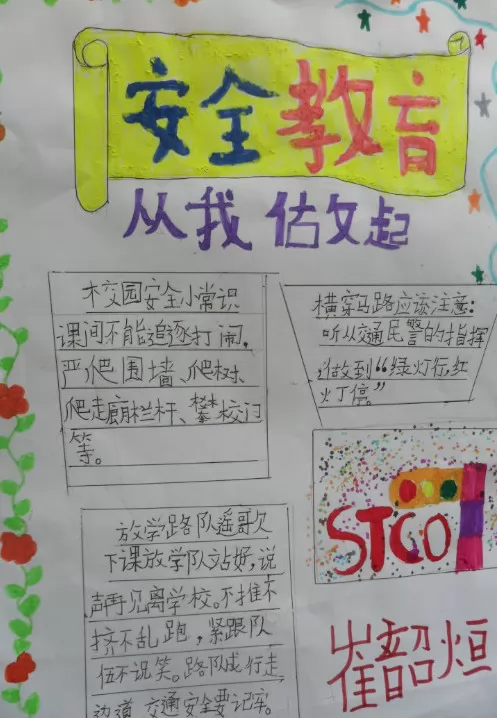 安全教育
从我做起
校园安全小常识
课间不能追逐打闹，
严爬围墙、爬树、
爬走廊栏杆、攀校门
等。
横穿马路应该注意：
听从交通民警的指挥
做到“绿灯行，红
火丁停。”
STCO
放学路队遥歌欠
下课放学队站好，说
声再见离学校。不推不
挤不乱跑，紧跟队
伍不说笑。路队成行走
边道，交通安全要记牢。
崔韶烜